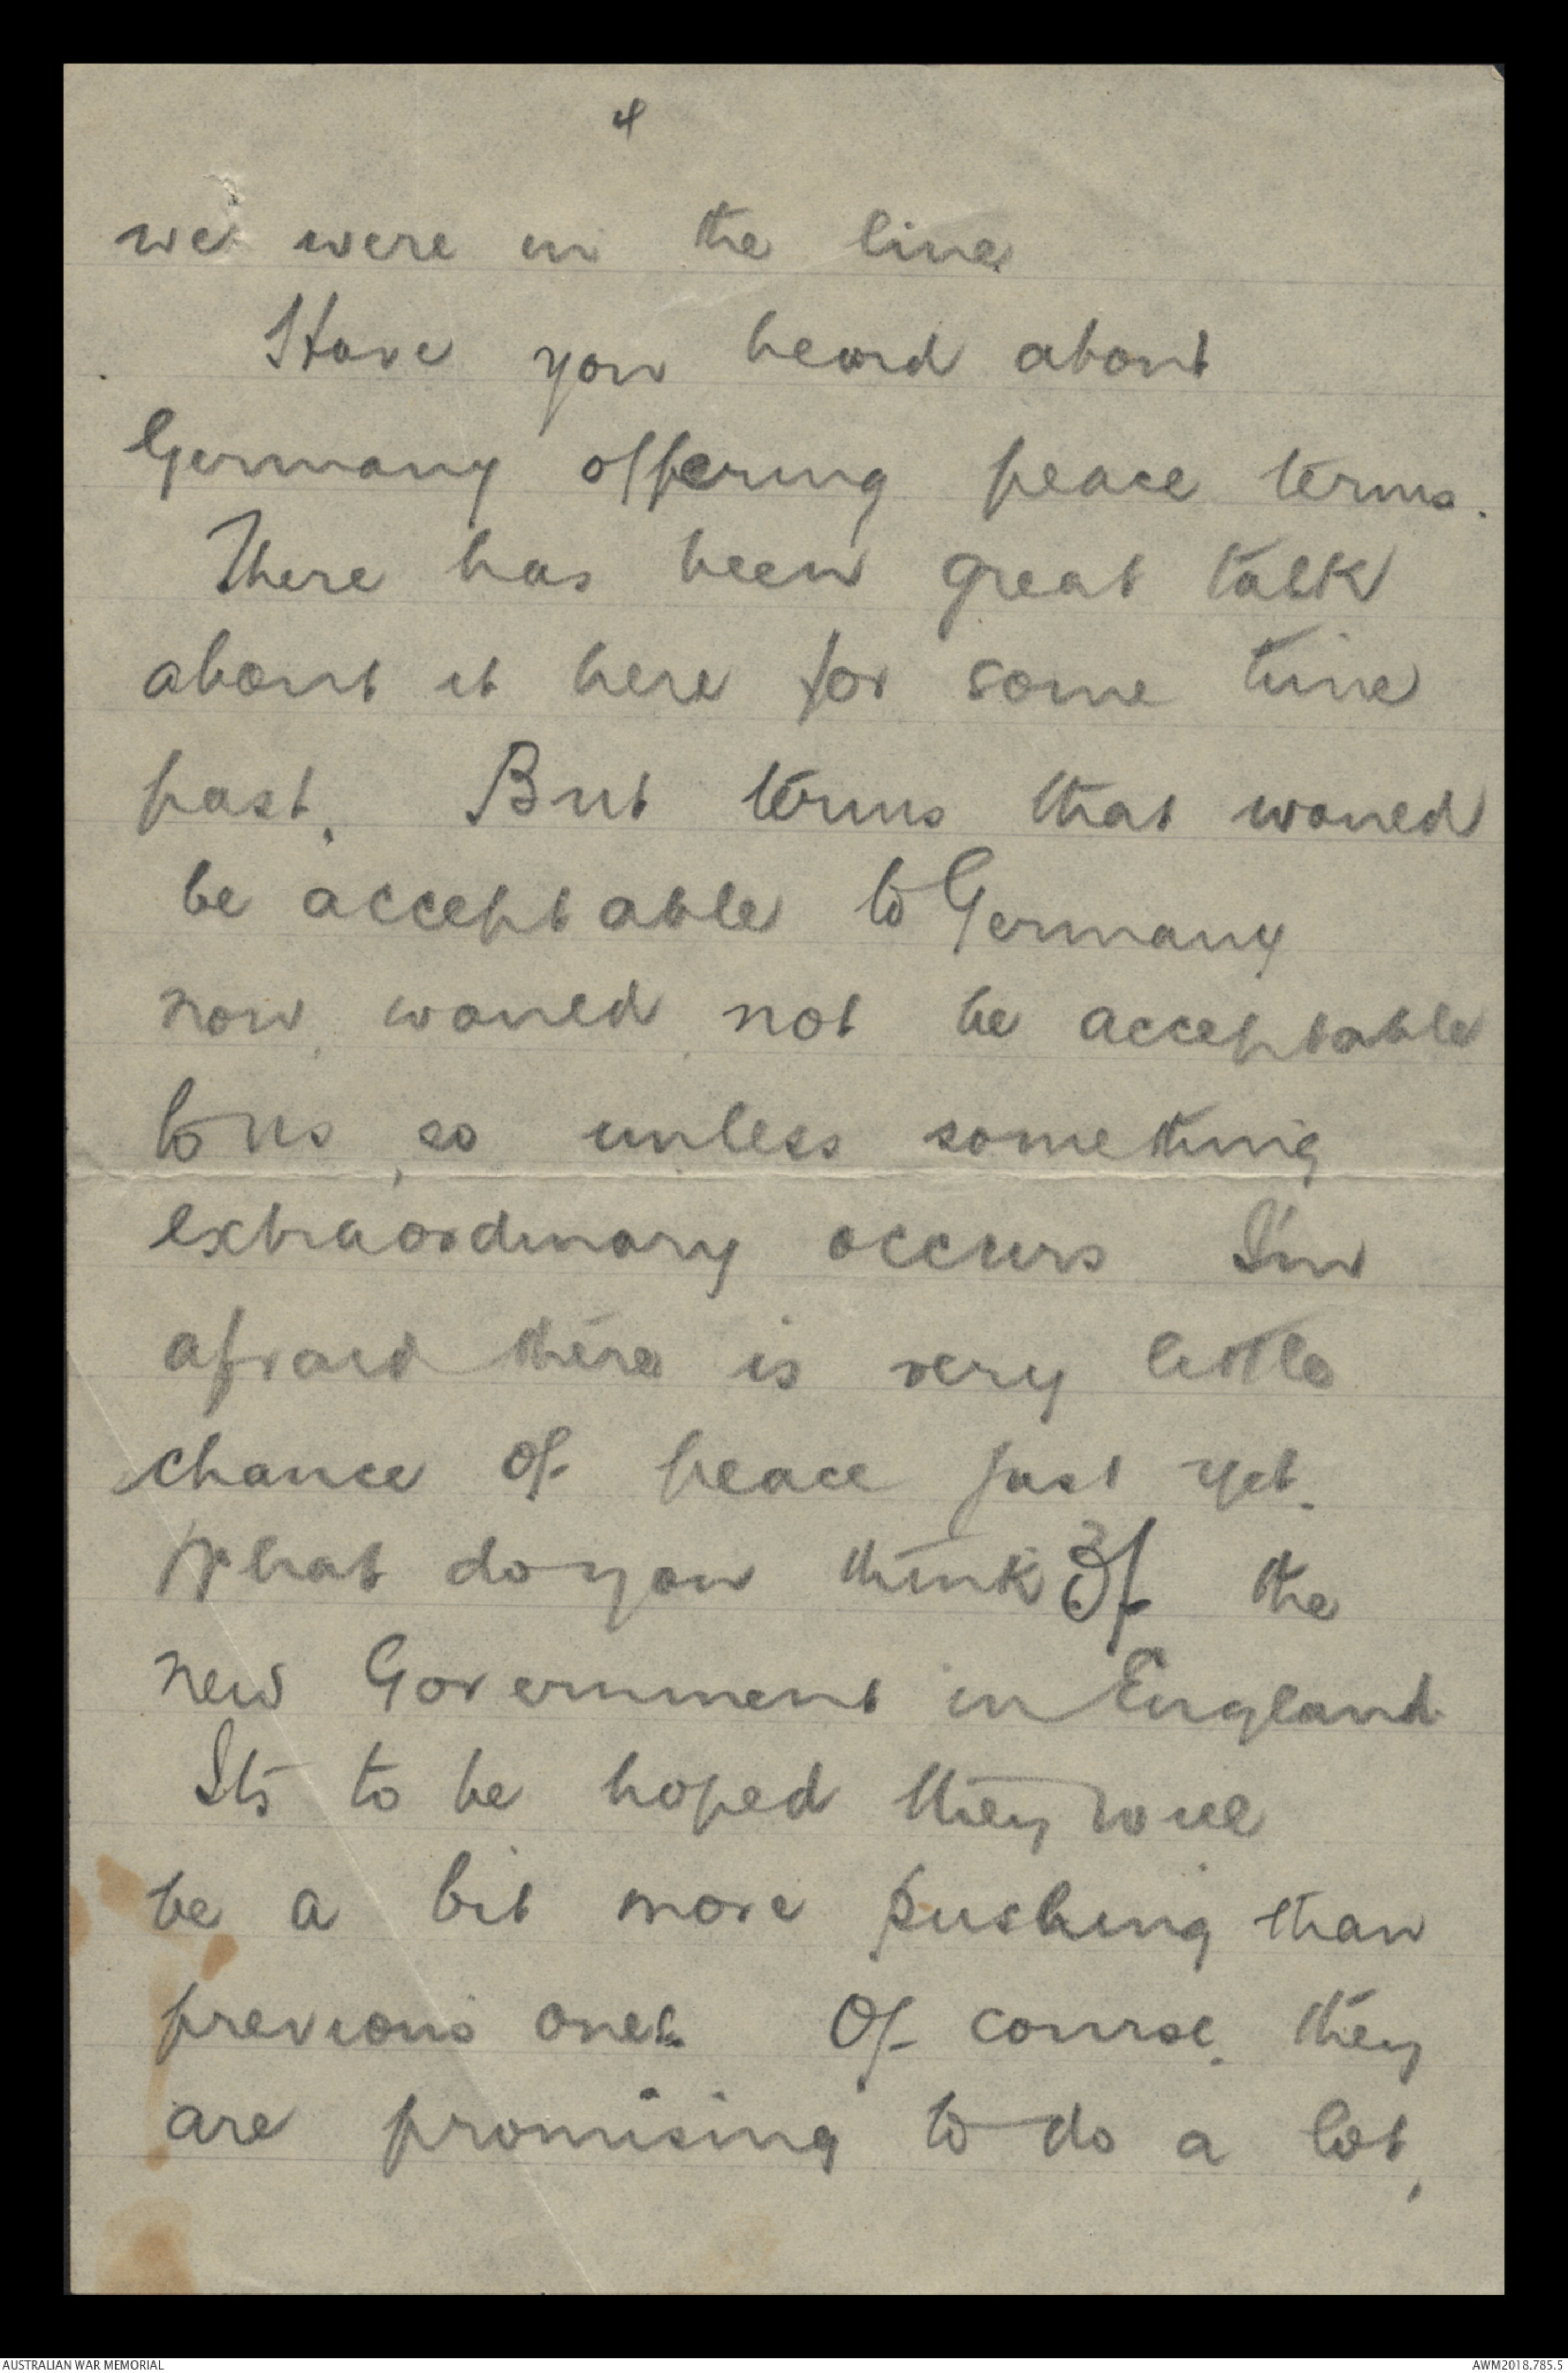 4
we were in the line
Have you heard about
Germany offering peace terms.
There has been great talk
about it here for some time
past. But terms that would
be acceptable to Germany
now would not be acceptable
to us, so unless something
extraordinary occurs I'm
afraid there is very little
chance of peace just yet.
What do you think of the
new Government in England
Its to be hoped they will
be a bit more pushing than
previous ones. Of course, they
are promising to do a lot,
AUSTRALIAN WAR MEMORIAL
AWM2018.785.5